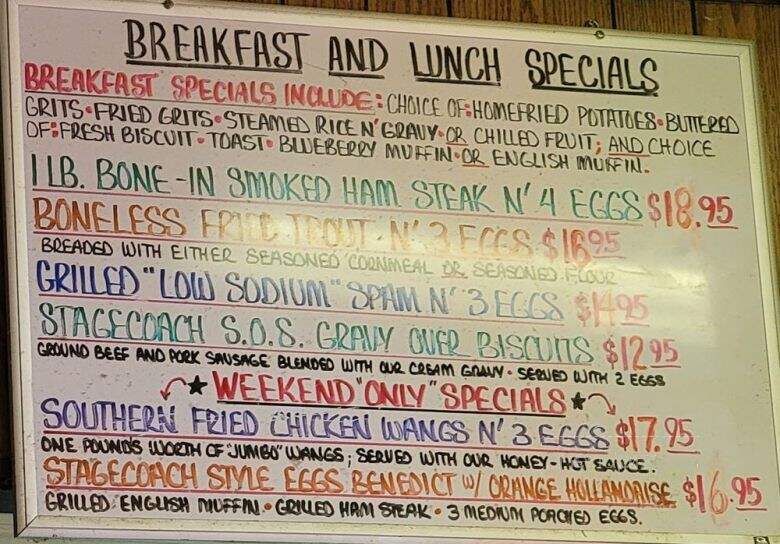 BREAKFAST AND LUNCH SPECIALS
BREAKFAST SPECIALS INCLUDE: CHOICE OF: HOMEFRIED POTATOES • BUTTERED
GRITS • FRIED GRITS • STEAMED RICE N' GRAVY • OR CHILLED FRUIT; AND CHOICE
OF: FRESH BISCUIT • TOAST • BLUEBERRY MUFFIN • OR ENGLISH MUFFIN.
1 LB. BONE-IN SMOKED HAM STEAK N' 4 EGGS $18.95
BONELESS FRIED TROUT N' 3 EGGS $16.95
BREADED WITH EITHER SEASONED CORNMEAL OR SEASONED FLOUR
GRILLED "LOW SODIUM" SPAM N' 3 EGGS $14.95
STAGECOACH S.O.S. GRAVY OVER BISCUITS $12.95
GROUND BEEF AND PORK SAUSAGE BLENDED WITH OUR CREAM GRAVY • SERVED WITH 2 EGGS
★ WEEKEND "ONLY" SPECIALS ★
SOUTHERN FRIED CHICKEN WANGS N' 3 EGGS $17.95
ONE POUNDS WORTH OF "JUMBO" WANGS; SERVED WITH OUR HONEY-HOT SAUCE.
STAGECOACH STYLE EGGS BENEDICT W/ ORANGE HOLLANDAISE $16.95
GRILLED ENGLISH MUFFIN • GRILLED HAM STEAK • 3 MEDIUM POACHED EGGS.